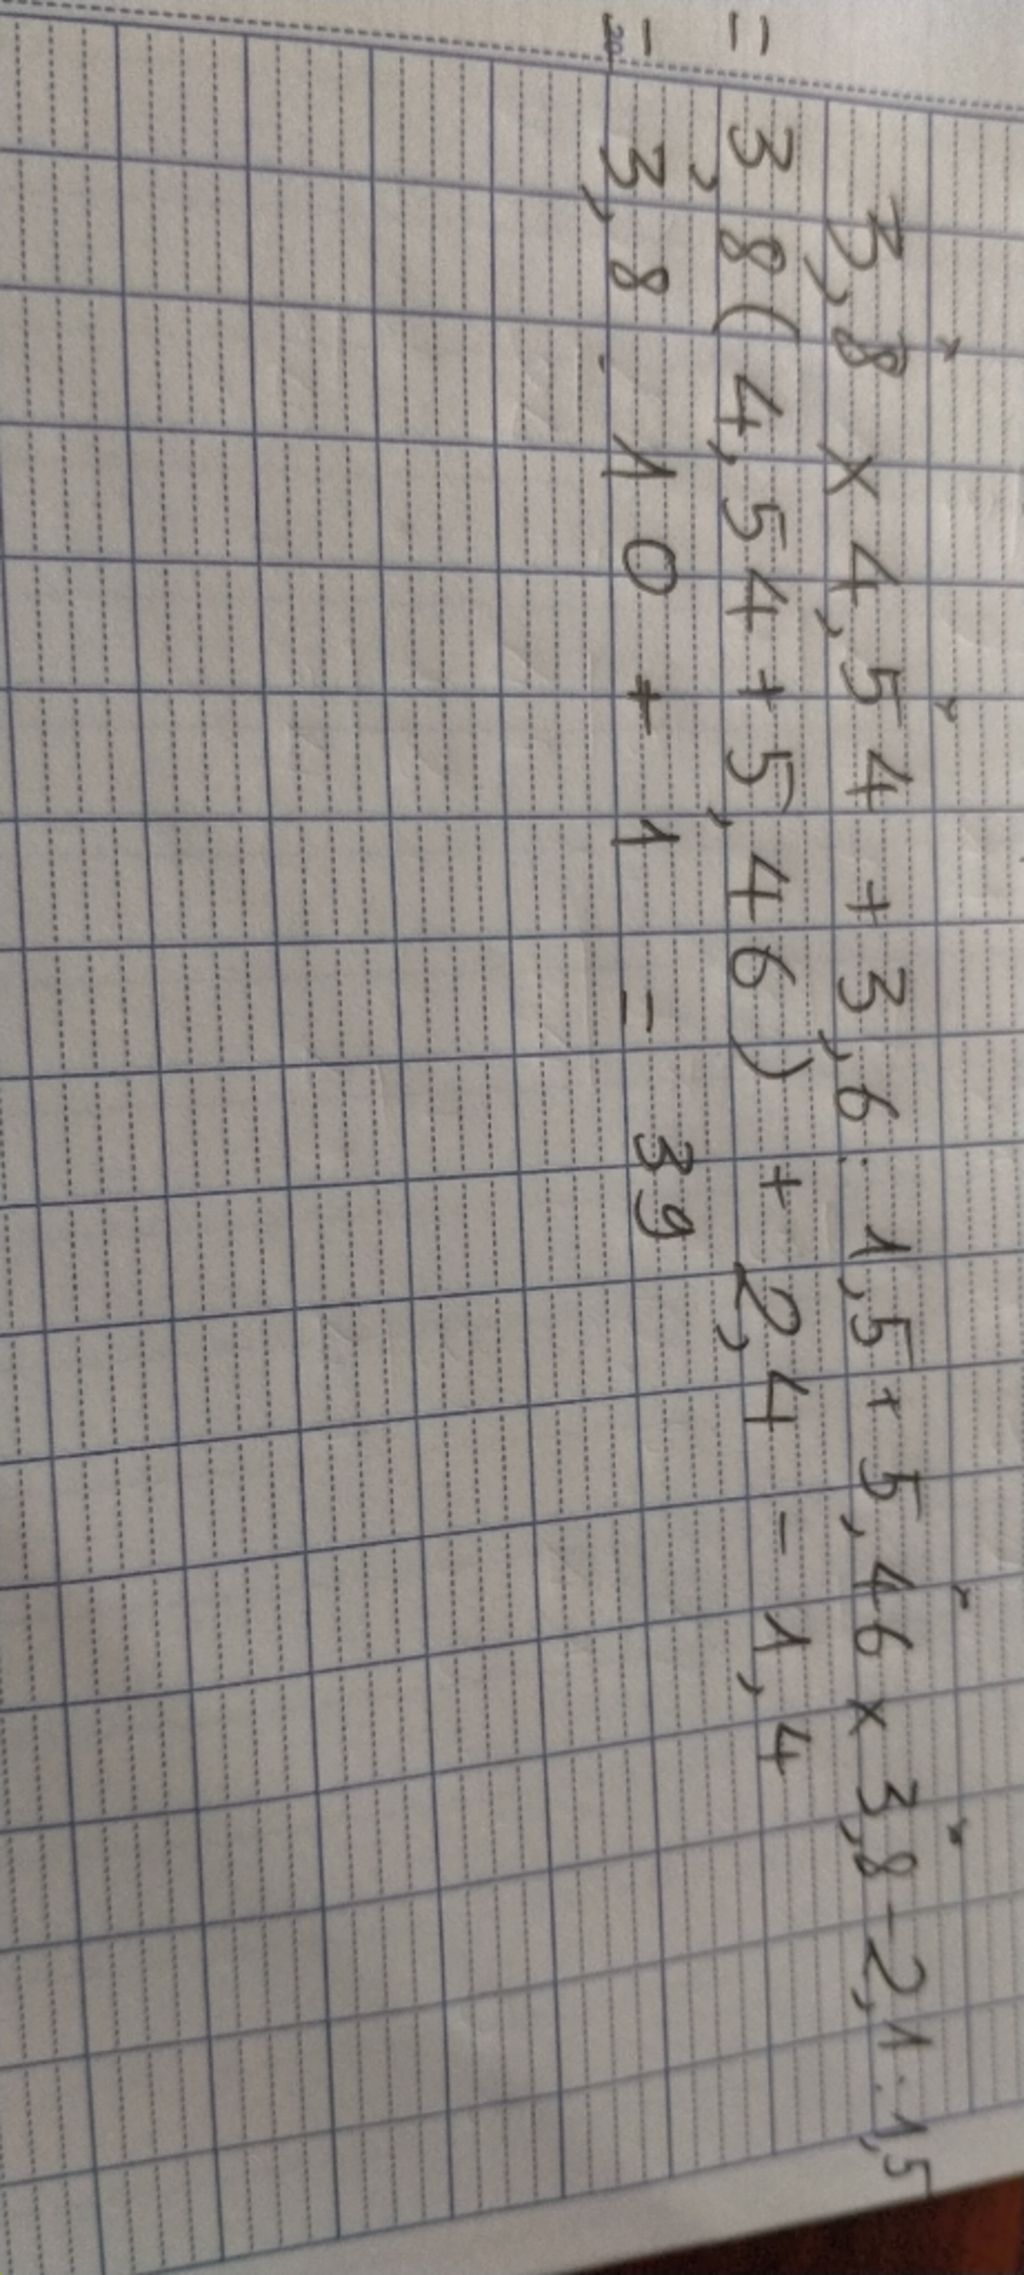 3,8 x 4,54 + 3,6 : 1,5 + 5,46 x 3,8 - 2,1 : 1,5
= 3,8 ( 4,54 + 5,46 ) + 2,4 - 1,4
= 3,8 . 10 + 1 = 39